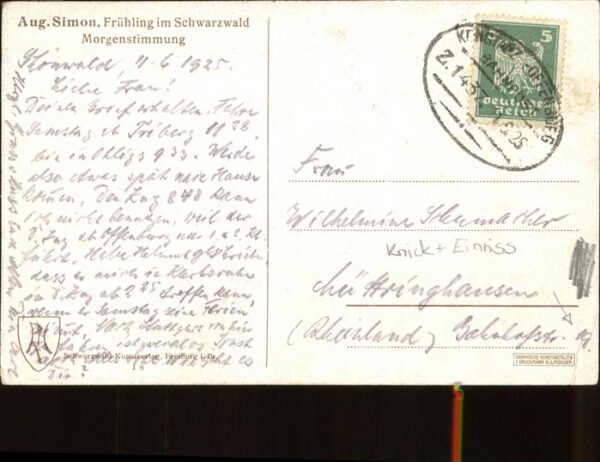 Aug. Simon, Frühling im Schwarzwald
Morgenstimmung
Schönwald 11.6.1925.
Liebe Frau!
Deinen Brief erhalten. Fahre
Samstag ab Triberg 11 28
bin in Ohligs 9 33. Werde
also etwas spät nach Hause
kommen. Den Zug 8 48 kann
ich nicht benutzen, weil der
D. Zug ab Offenburg nur 1 u 2. Kl.
führt. Habe Helmut geschrieben,
dass er mich in Karlsruhe
im D. Zug ab 2 25 treffen kann,
wenn er Samstag seine Ferien
Schwarzwald-Kunstverlag, Freiburg i. Br.
KONSTANZ OFFENBURG
BAHNPOST
Z. 145
6 25
5
Deutsches
Reich
Frau
Wilhelmine Schumacher
Knick + Einriss
Lüttringhausen
(Rheinland) Bahnhofstr.
GRAPHISCHE KUNSTANSTALTEN
F. BRUCKMANN A.G. MÜNCHEN